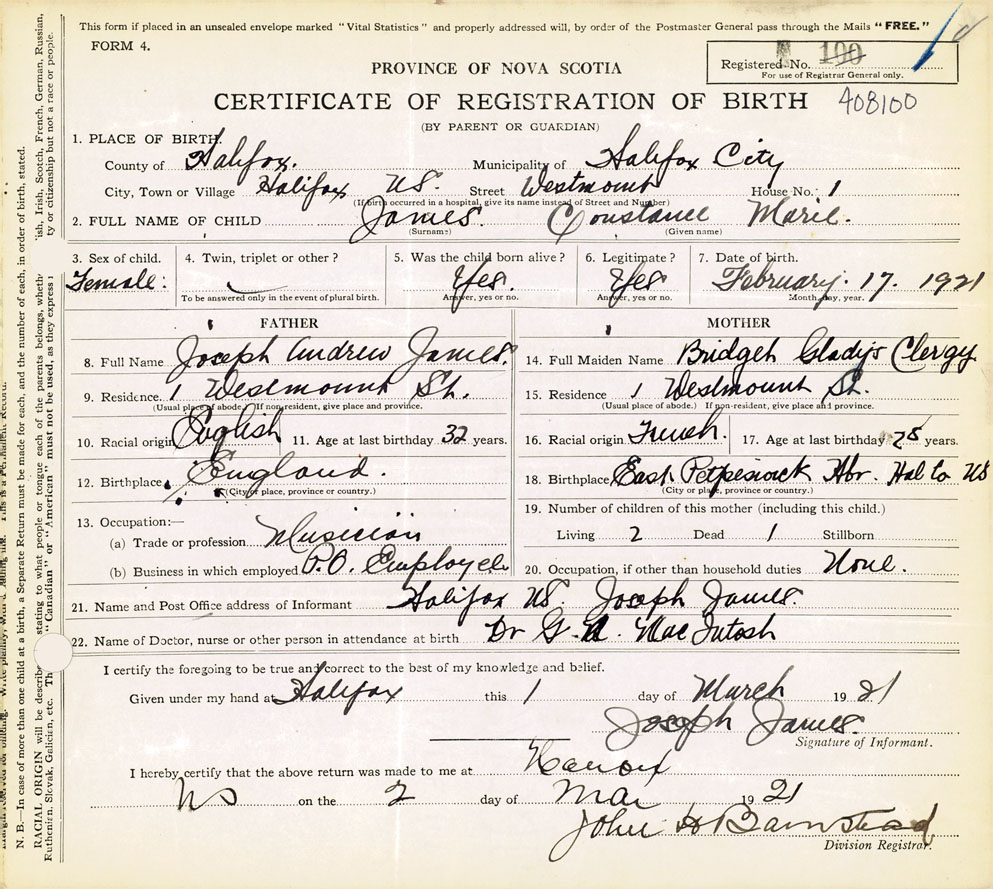 This form if placed in an unsealed envelope marked "Vital Statistics" and properly addressed will, by order of the Postmaster General pass through the Mails "FREE."
FORM 4.
Registered No. 100
For use of Registrar General only.
PROVINCE OF NOVA SCOTIA
CERTIFICATE OF REGISTRATION OF BIRTH 408100
(BY PARENT OR GUARDIAN)
1. PLACE OF BIRTH.
County of Halifax. Municipality of Halifax City
City, Town or Village Halifax NS. Street Westmount House No. 1
(If birth occurred in a hospital, give its name instead of Street and Number)
2. FULL NAME OF CHILD James. Constance Marie.
(Surname) (Given name)
3. Sex of child. 4. Twin, triplet or other? 5. Was the child born alive? 6. Legitimate? 7. Date of birth.
Female: Yes. Yes February. 17. 1921
To be answered only in the event of plural birth. Answer, yes or no. Answer, yes or no. Month, day, year.
FATHER MOTHER
8. Full Name Joseph Andrew James. 14. Full Maiden Name Bridget Gladys Clergy
9. Residence. 1 Westmount St. 15. Residence 1 Westmount St.
(Usual place of abode.) If non-resident, give place and province. (Usual place of abode.) If non-resident, give place and province.
10. Racial origin English 11. Age at last birthday 32 years. 16. Racial origin French. 17. Age at last birthday years.
12. Birthplace England. 18. Birthplace East Petpeswick Hbr. Hal Co NS
(City or place, province or country.) (City or place, province or country.)
13. Occupation:— 19. Number of children of this mother (including this child.)
(a) Trade or profession Musician Living 2 Dead 1 Stillborn
(b) Business in which employed P.O. Employee 20. Occupation, if other than household duties None.
21. Name and Post Office address of Informant Halifax NS. Joseph James.
22. Name of Doctor, nurse or other person in attendance at birth Dr G. A. MacIntosh
I certify the foregoing to be true and correct to the best of my knowledge and belief.
Given under my hand at Halifax this 1 day of March 1921
Joseph James.
Signature of Informant.
I hereby certify that the above return was made to me at
NS on the 2 day of Mar 1921
John H Barnstead
Division Registrar.
N. B.—In case of more than one child at a birth, a Separate Return must be made for each, and the number of each, in order of birth, stated.